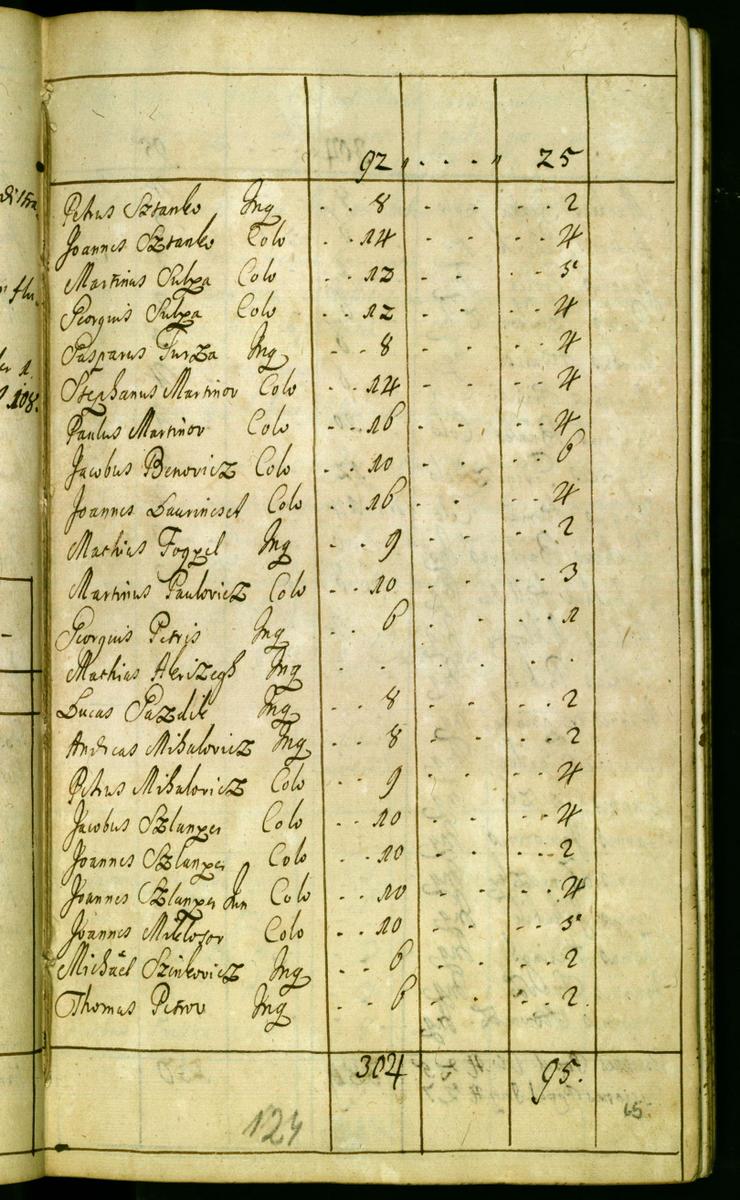 92 25
Petrus Sztanko Inq 8 2
Joannes Sztanko Colo 14 4
Martinus Sulya Colo 12 5
Georgius Sulya Colo 12 4
Gasparus Turza Inq 8 4
Stephanus Martinov Colo 14 4
Paulus Martinov Colo 16 4
Jacobus Benovicz Colo 10 6
Joannes Laurincsek Colo 16 4
Mathias Inq 9 2
Martinus Paulovicz Colo 10 3
Georgius Petrjs Inq 6 1
Mathias Inq
Lucas Gazdik Inq 8 2
Andreas Mihalovicz Inq 8 2
Petrus Mihalovicz Colo 9 4
Jacobus Szlanyer Colo 10 4
Joannes Szlanyer Colo 10 2
Joannes Szlanyer Jun Colo 10 4
Joannes Colo 10 5
Michael Szinkovicz Inq 6 2
Thomas Petrov Inq 6 2
304 95.
65
124
108.